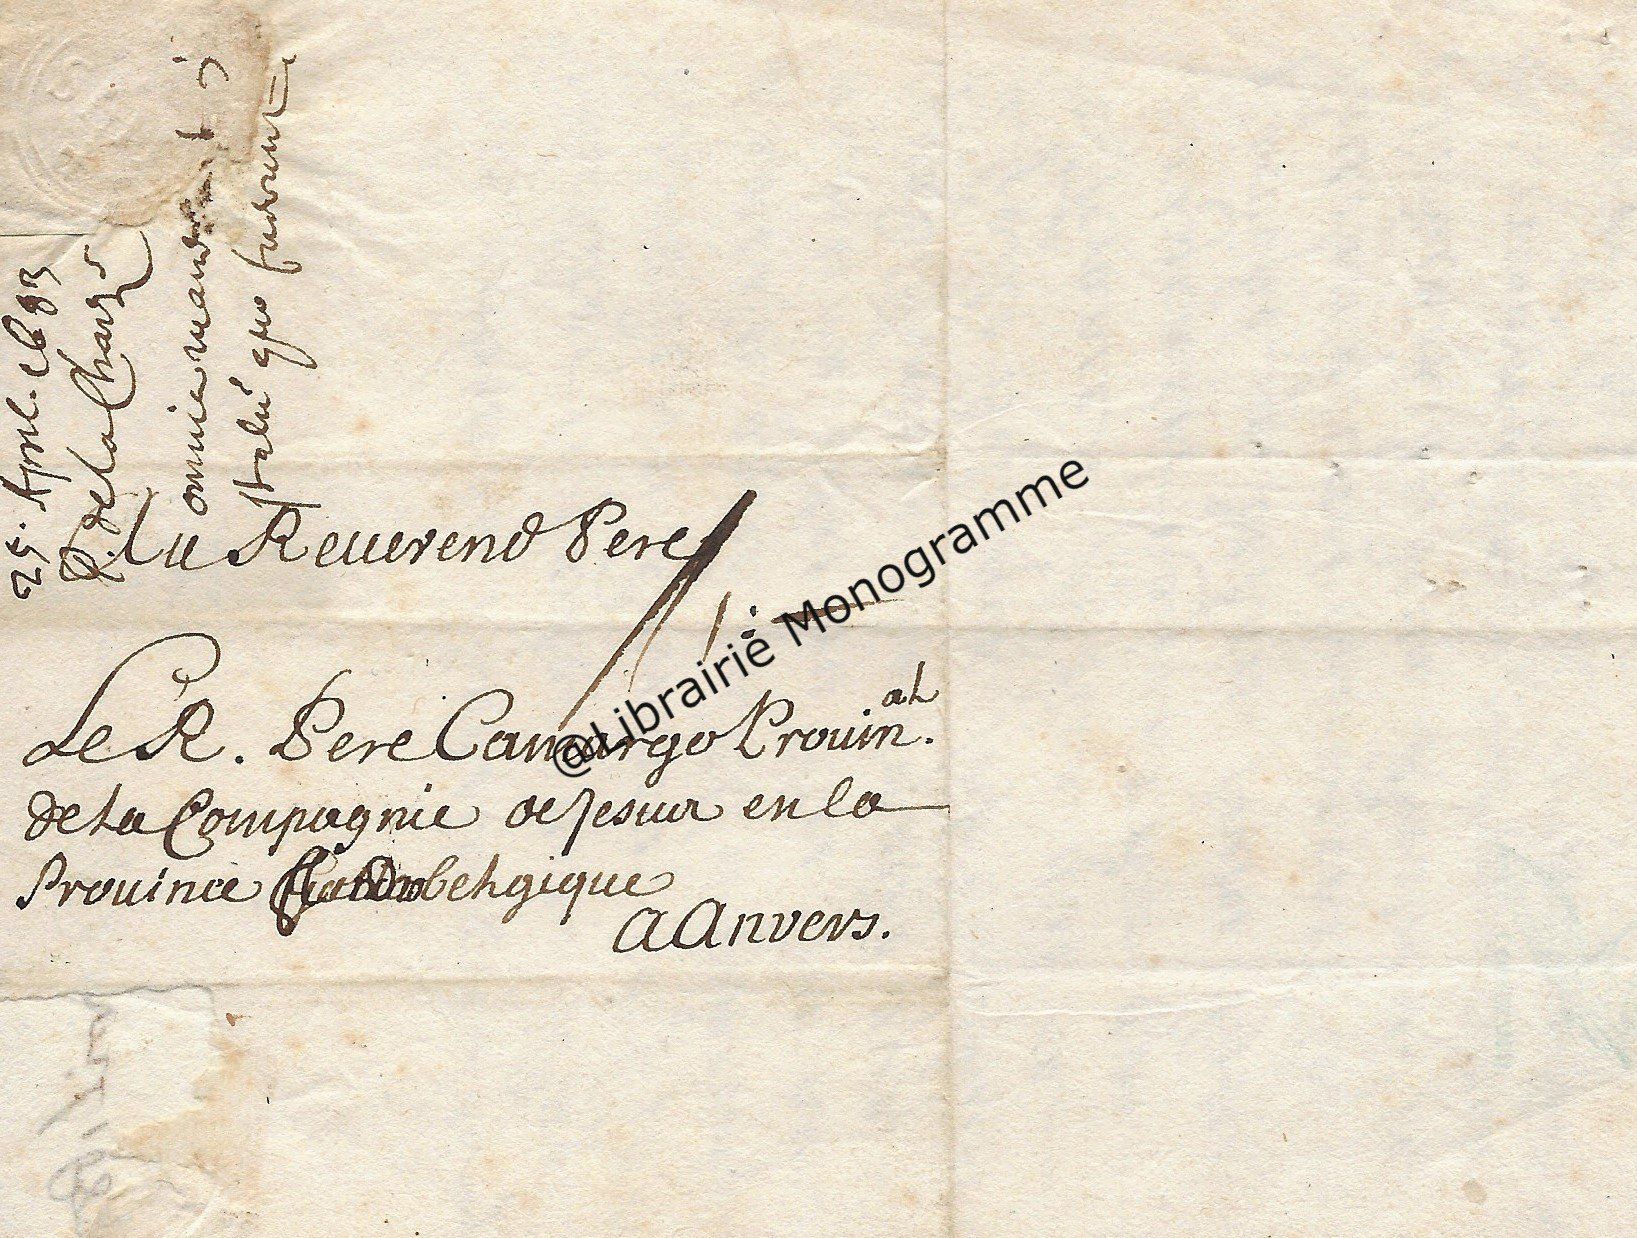 25. April. 1693
P. de la Chaize
omnia mand
statu quo fuerunt
Au Reuerend Pere
Le R. Pere Camargo Prouin.al
de la Compagnie de Jesus en la
Prouince belgique
A Anvers.
@Librairie Monogramme